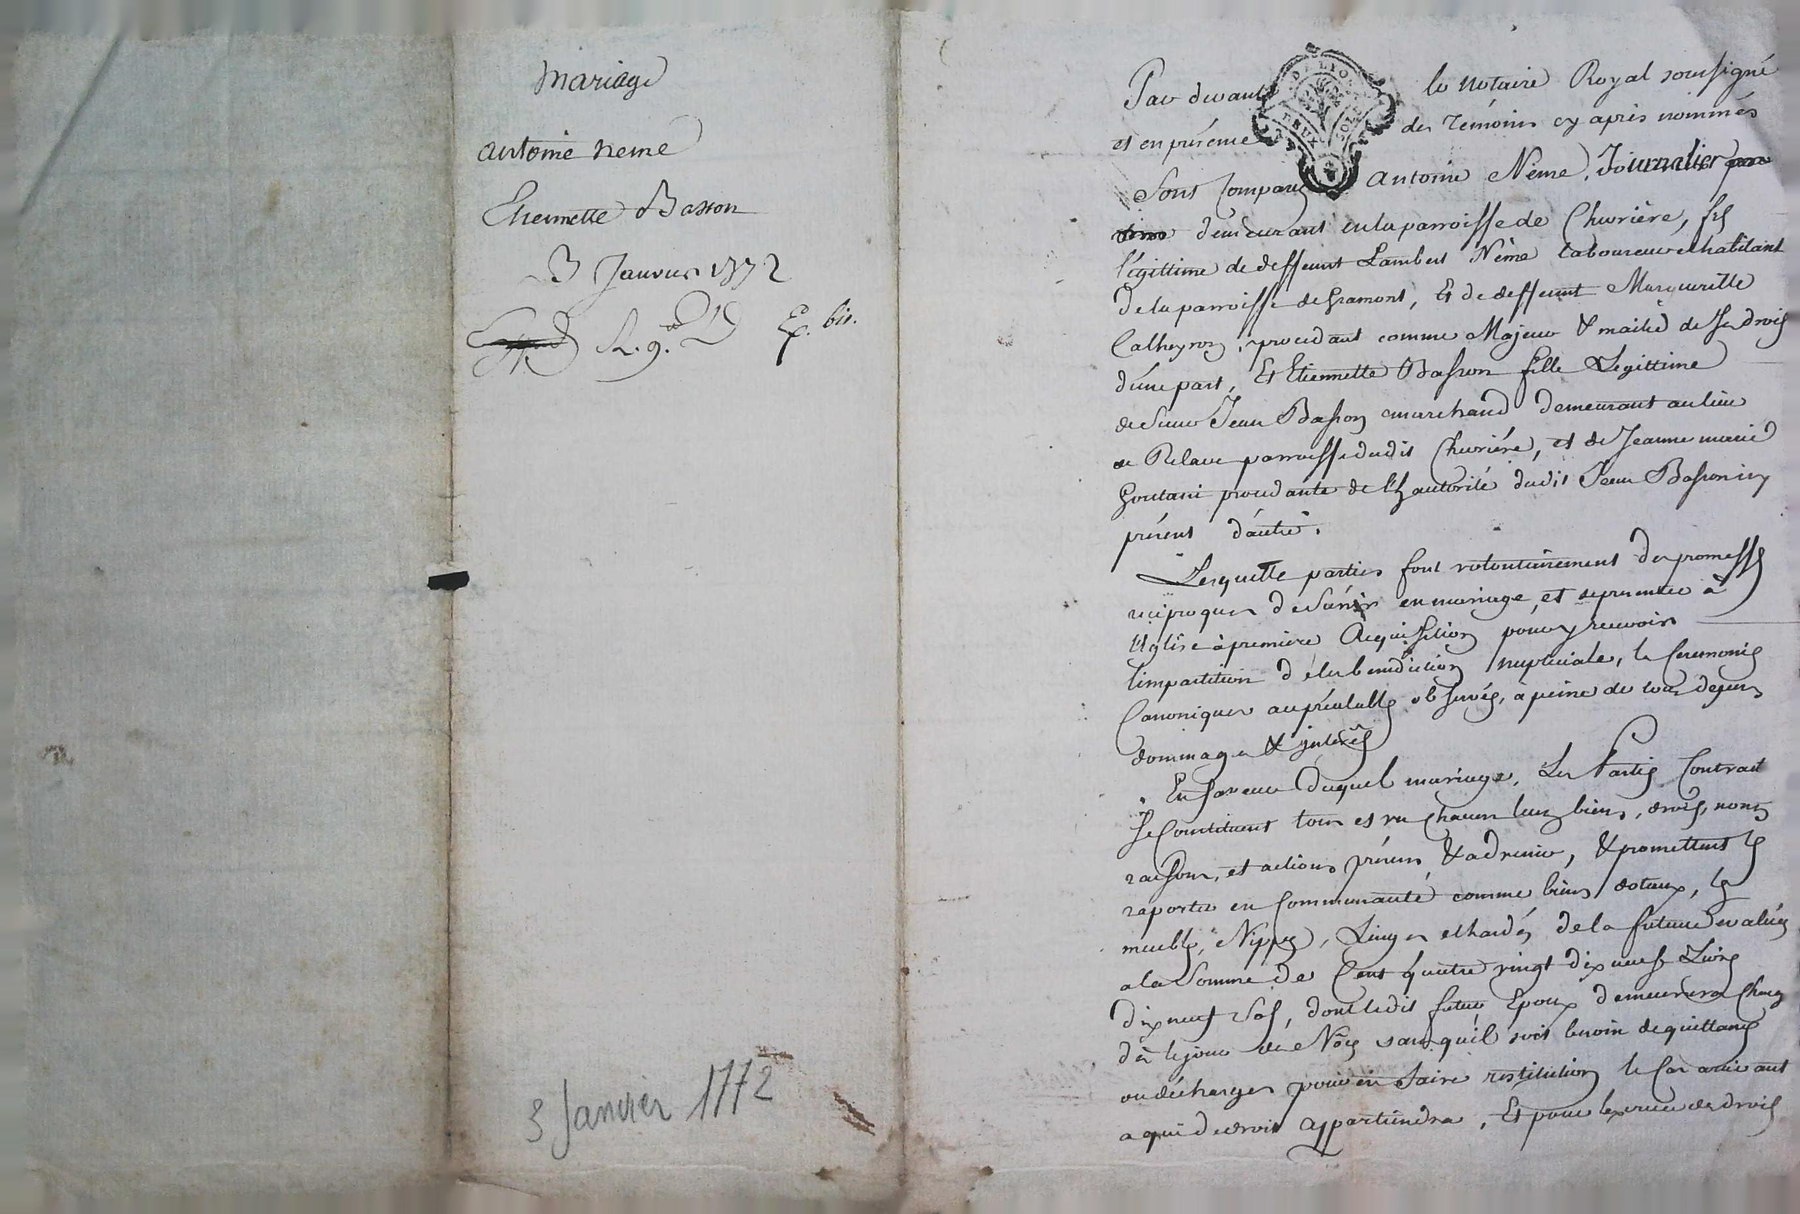 Mariage
Antoine neme
Etiennette Basson
3 Janvier 1772
Ex. bis.
3 Janvier 1772
DE LYON
DEUX SOLS
Par devant le Notaire Royal soussigné
et en présence des Témoins cy après nommés
Sont Comparus Antoine Nême, Journalier
demeurant en la parroisse de Chevrière, fils
légittime de deffeunt Lambert Nême laboureur et habitant
de la parroisse de Gramont, Et de deffeunte Margueritte
Calheyron, procédant comme Majeur & maitre de ses droits
d'une part, Et Etiennette Basson fille Légittime
de Sieur Jean Basson marchand demeurant au lieu
de Relave parroisse dudit Chevriére, et de Jeanne marie
Goutani procédante de l'autorité dudit Jean Basson icy
présent d'autre.
Lesquelle parties font volontairement des promesses
réciproques de s'unir en mariage, et se présenter à
l'Eglise à première Réquisition pour y recevoir
l'impartition de la bénédiction nuptiale, les Ceremonies
Canoniques au préalable observés, à peine de tous depens
dommages & intérêts
En faveur duquel mariage, Les Parties Contract
se Constituent tous et un chacun leurs biens, droits, noms
raisons, et actions présens & advenir, & promettent les
raporter en Communauté comme biens dotaux, les
meubles, Nippes, Linges et hardes de la future évalués
a la Somme de Cent quatre vingt dix neuf Livres
dix neuf Sols, dont ledit futur Epoux demeurera Chargé
dès le jour des Nôces sans quil soit besoin de quittance
ou décharges pour en faire restitution le Cas arrivant
a qui de droit appartiendra, Et pour les droits